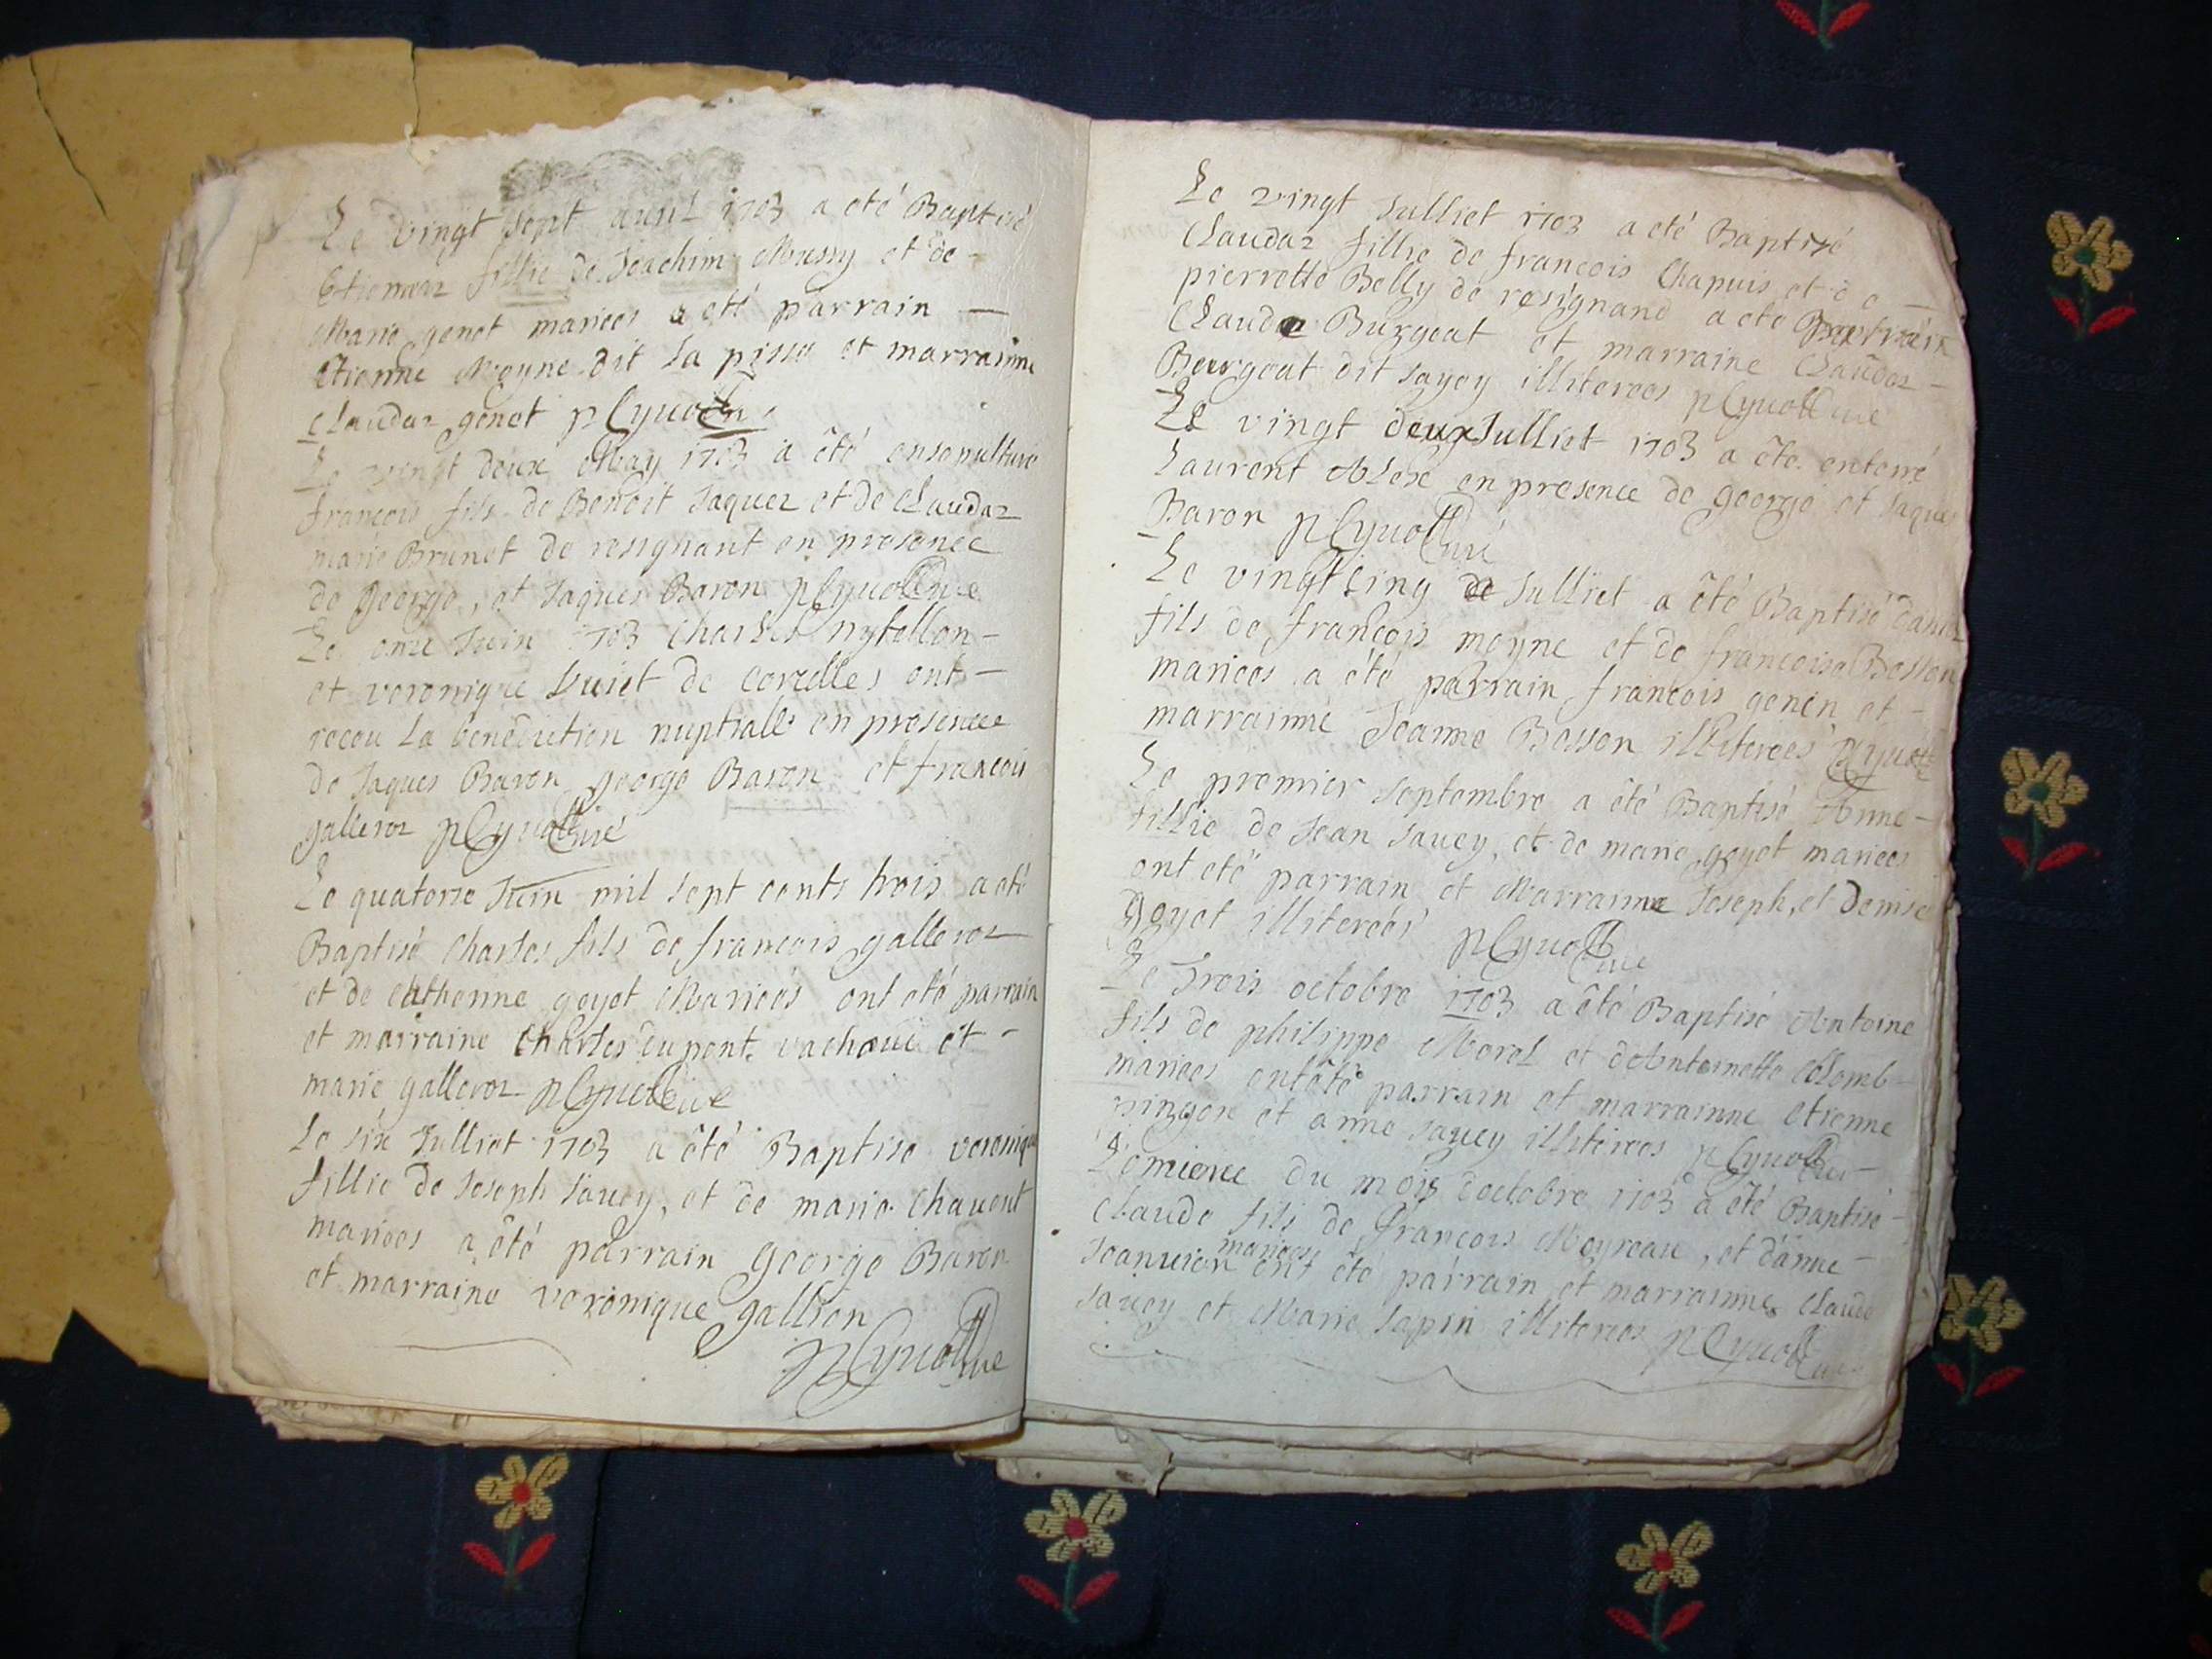 Le vingt sept avril 1703 a eté Baptisé
fillie de Joachim Mussy et de
Marie genet mariees a eté parrain
Etienne Moyne dit la pisse et marrainne
Claudaz genet
Le vingt deux May 1703 a êté ensepulturé
françois fils de Benoit Jaquez et de Claudaz
marie Brunet de resignant en presence
de George, et Jaques Baron
Le onze Juin 1703 Charles
et veronique de Corcelles ont
receu la benediction nuptialle en presence
de Jaques Baron george Baron et françois
galleroz
Le quatorze Juin mil sept cents trois a eté
Baptisé Charles fils de françois galleroz
et de Catherine goyet Mariees ont eté parrain
et marraine Charles dupont et
marie galleroz
Le six Julliet 1703 a êté Baptise veronique
fillie de Joseph Savey, et de marie Chavent
mariees a êté parrain George Baron
et marraine veronique gallion
Le vingt Julliet 1703 a eté Baptizé
Claudaz fillie de françois Chapuis et de
pierrette Belly de resignand a eté parrain
Claude Burgeat et marraine Claudaz
Bourgeat dit Savey illiterees
Le vingt deux Julliet 1703 a êté enterré
Laurent en presence de George et Jaques
Baron
Le vingt cinq de Julliet a êté Baptisé
fils de françois moyne et de francoise Bosson
mariees a êté parrain francois genen et
marrainne Jeanne Bosson illiterees
Le premier septembre a êté Baptisé Anne
fillie de Jean Savey, et de marie goyet mariees
ont eté parrain et Marrainne Joseph, et Denise
Goyet illiterées
Le Trois octobre 1703 a êté Baptisé Antoine
fils de philippe Morel et dAntoinette Colomb
mariees ont êté parrain et marrainne etienne
et anne Savey illiterees
du mois doctobre 1703 a eté Baptisé
Claude fils de françois Moyreau, et d'anne
mariees
ont êté parrain et marrainne Claude
Savey et Marie Sapin illiterees